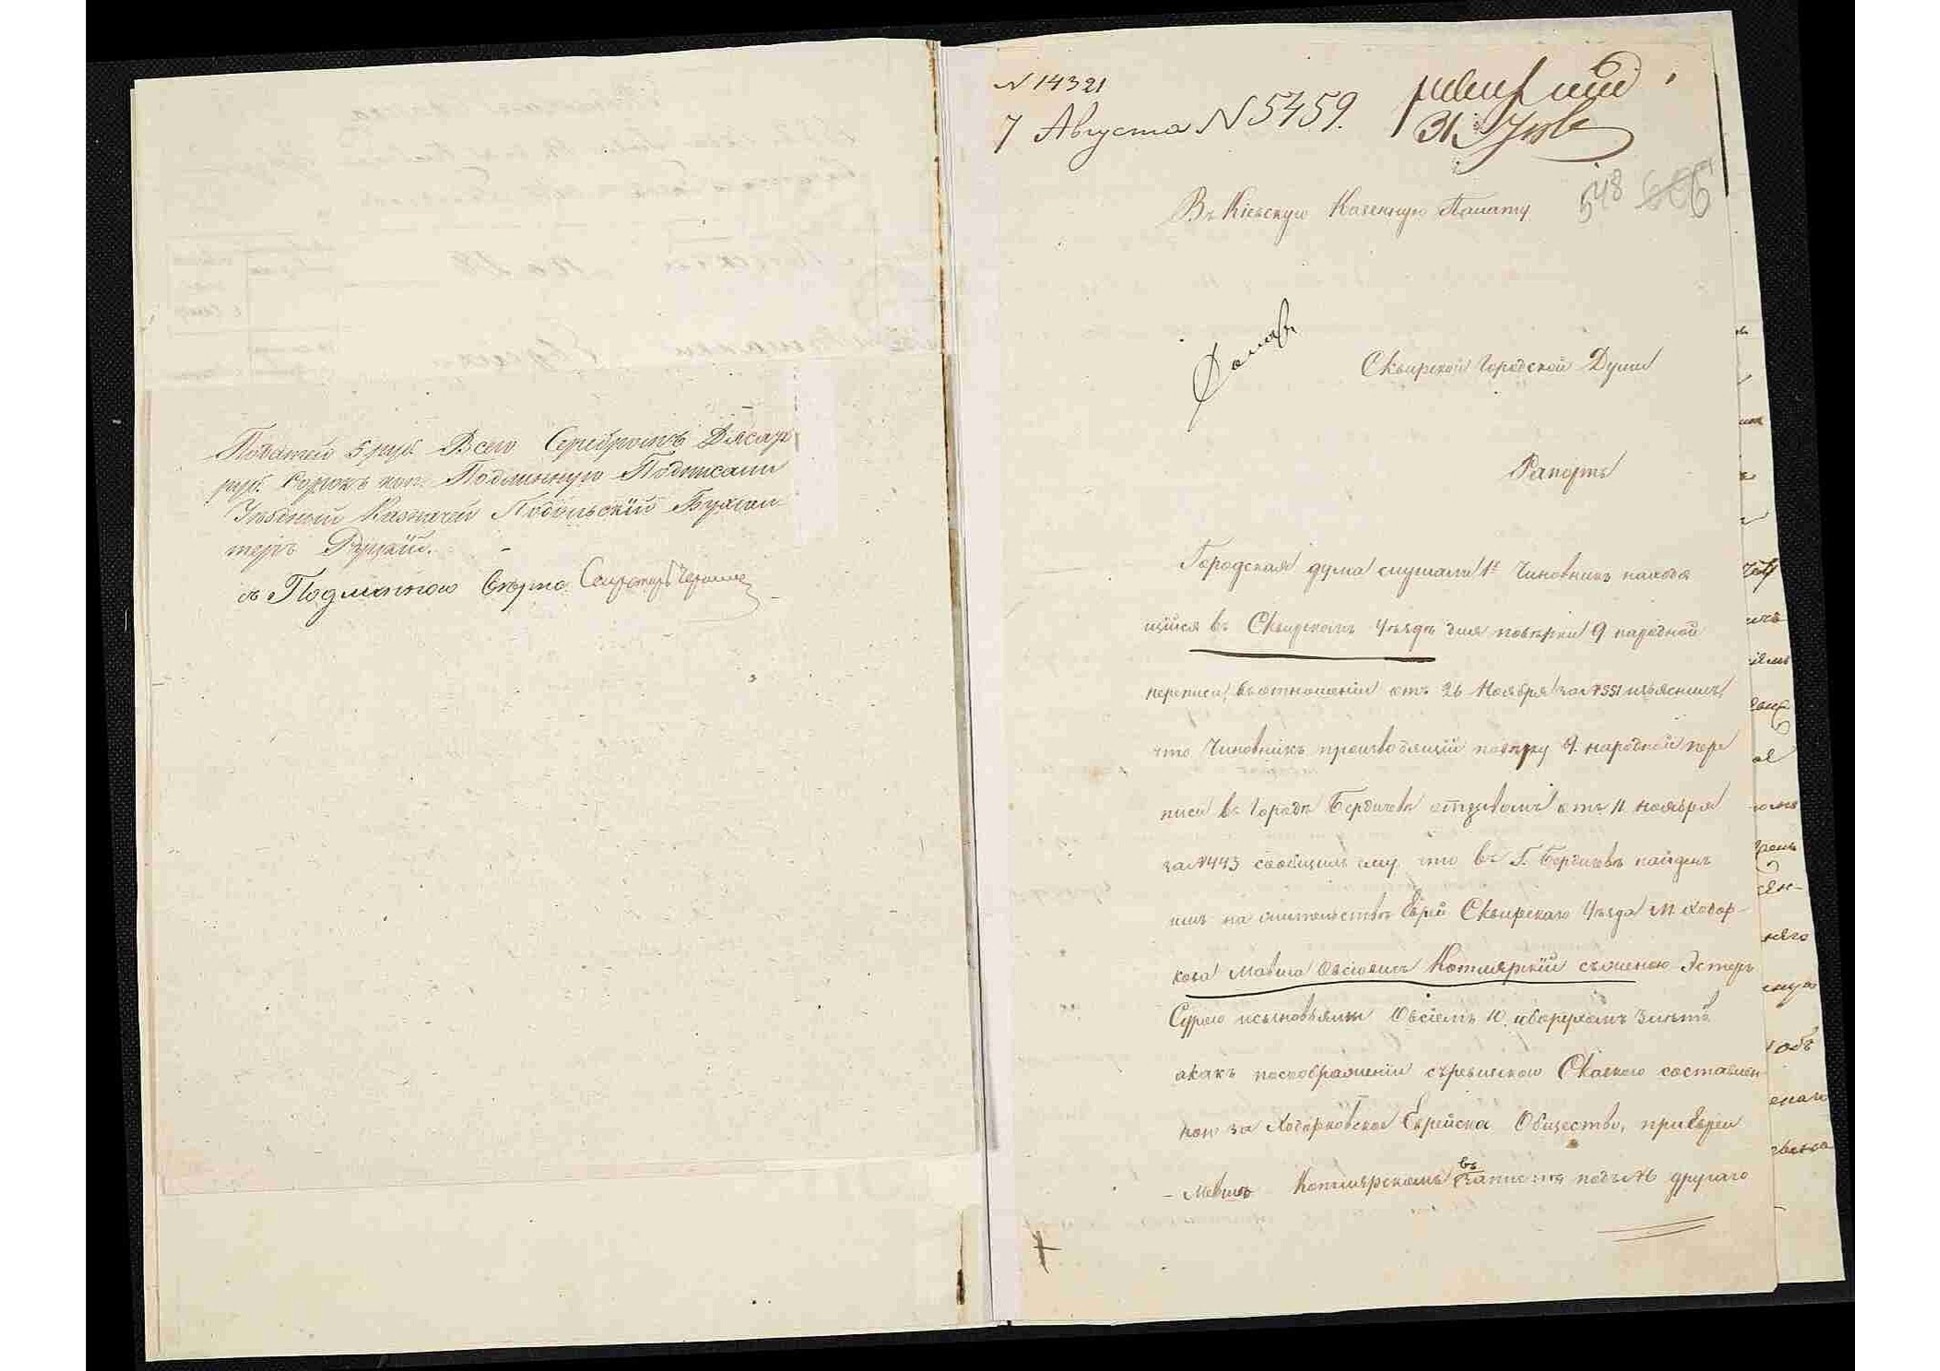 Податей 5 руб. Всего Серебромъ Десять
руб. Сорокъ коп. Подлинную Подписали
Уѣздный Казначей Подольскій Бухгал
теръ Руцкій.
съ Подлинною вѣрно Секретарь
N 14321
7 Августа N 5459.
6
31
548
Въ Кіевскую Казенную Палату
Сквирской Городской Думы
Рапортъ
Городская дума слушали 1е Чиновникъ находя
щійся въ Сквирскомъ Уѣздѣ для повѣрки 9 народной
переписи, въ отношеніи отъ 26 Ноября за N 551 изъяснилъ,
что Чиновникъ производящій повѣрку 9. народной пере
писи въ Городѣ Бердичевѣ отзывомъ отъ 11 ноября
за N 443 сообщилъ ему что въ Г. Бердичевѣ найденъ
имъ на жительствѣ Еврей Сквирскаго Уѣзда М. Ходор-
кова Мавша Овсіовичъ Котлярскій съ женою Эстеръ
Сурою и сыновьями Овсіемъ 10. и Борухомъ 3 лѣтъ
а какъ по соображеніи съ ревизскою Сказкою составлен
ною за Ходорковское Еврейска Общество, при Евреи
- Мовшѣ Котлярскомъ въ записи подъ N другаго